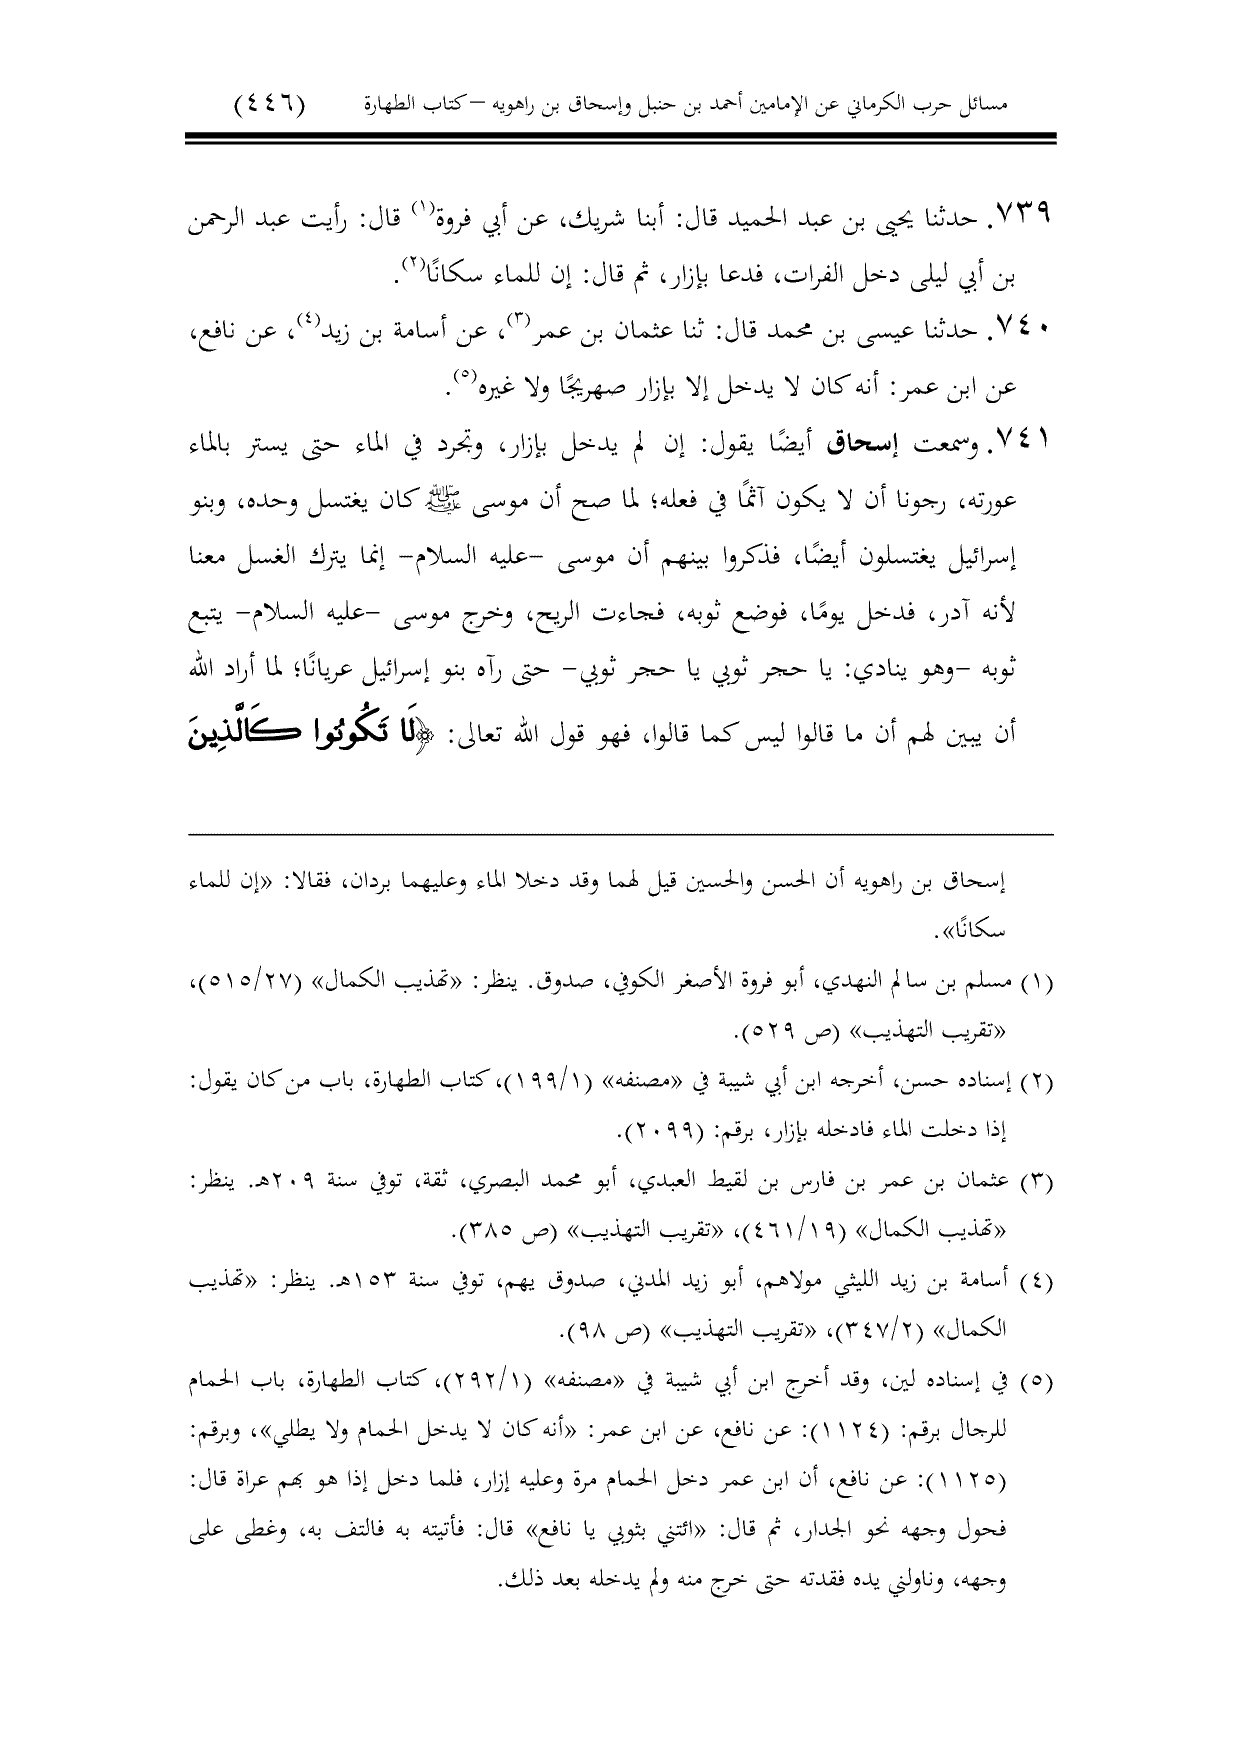 مسائل حرب الكرماني عن الإمامين أحمد بن حنبل وإسحاق بن راهويه – كتاب الطهارة (٤٤٦)
٧٣٩. حدثنا يحيى بن عبد الحميد قال: أبنا شريك، عن أبي فروة(١) قال: رأيت عبد الرحمن
بن أبي ليلى دخل الفرات، فدعا بإزار، ثم قال: إن للماء سكانًا(٢).
٧٤٠. حدثنا عيسى بن محمد قال: ثنا عثمان بن عمر(٣)، عن أسامة بن زيد(٤)، عن نافع،
عن ابن عمر: أنه كان لا يدخل إلا بإزار صهريجًا ولا غيره(٥).
٧٤١. وسمعت إسحاق أيضًا يقول: إن لم يدخل بإزار، وتجرد في الماء حتى يستر بالماء
عورته، رجونا أن لا يكون آثمًا في فعله؛ لما صح أن موسى ﷺ كان يغتسل وحده، وبنو
إسرائيل يغتسلون أيضًا، فذكروا بينهم أن موسى -عليه السلام- إنما يترك الغسل معنا
لأنه آدر، فدخل يومًا، فوضع ثوبه، فجاءت الريح، وخرج موسى -عليه السلام- يتبع
ثوبه -وهو ينادي: يا حجر ثوبي يا حجر ثوبي- حتى رآه بنو إسرائيل عريانًا؛ لما أراد الله
أن يبين لهم أن ما قالوا ليس كما قالوا، فهو قول الله تعالى: ﴿لَا تَكُونُوا كَالَّذِينَ
إسحاق بن راهويه أن الحسن والحسين قيل لهما وقد دخلا الماء وعليهما بردان، فقالا: «إن للماء
سكانًا».
(١) مسلم بن سالم النهدي، أبو فروة الأصغر الكوفي، صدوق. ينظر: «تهذيب الكمال» (٥١٥/٢٧)،
«تقريب التهذيب» (ص ٥٢٩).
(٢) إسناده حسن، أخرجه ابن أبي شيبة في «مصنفه» (١٩٩/١)، كتاب الطهارة، باب من كان يقول:
إذا دخلت الماء فادخله بإزار، برقم: (٢٠٩٩).
(٣) عثمان بن عمر بن فارس بن لقيط العبدي، أبو محمد البصري، ثقة، توفي سنة ٢٠٩هـ. ينظر:
«تهذيب الكمال» (٤٦١/١٩)، «تقريب التهذيب» (ص ٣٨٥).
(٤) أسامة بن زيد الليثي مولاهم، أبو زيد المدني، صدوق يهم، توفي سنة ١٥٣هـ. ينظر: «تهذيب
الكمال» (٣٤٧/٢)، «تقريب التهذيب» (ص ٩٨).
(٥) في إسناده لين، وقد أخرج ابن أبي شيبة في «مصنفه» (٢٩٢/١)، كتاب الطهارة، باب الحمام
للرجال برقم: (١١٢٤): عن نافع، عن ابن عمر: «أنه كان لا يدخل الحمام ولا يطلي»، وبرقم:
(١١٢٥): عن نافع، أن ابن عمر دخل الحمام مرة وعليه إزار، فلما دخل إذا هو بهم عراة قال:
فحول وجهه نحو الجدار، ثم قال: «ائتني بثوبي يا نافع» قال: فأتيته به فالتف به، وغطى على
وجهه، وناولني يده فقدته حتى خرج منه ولم يدخله بعد ذلك.